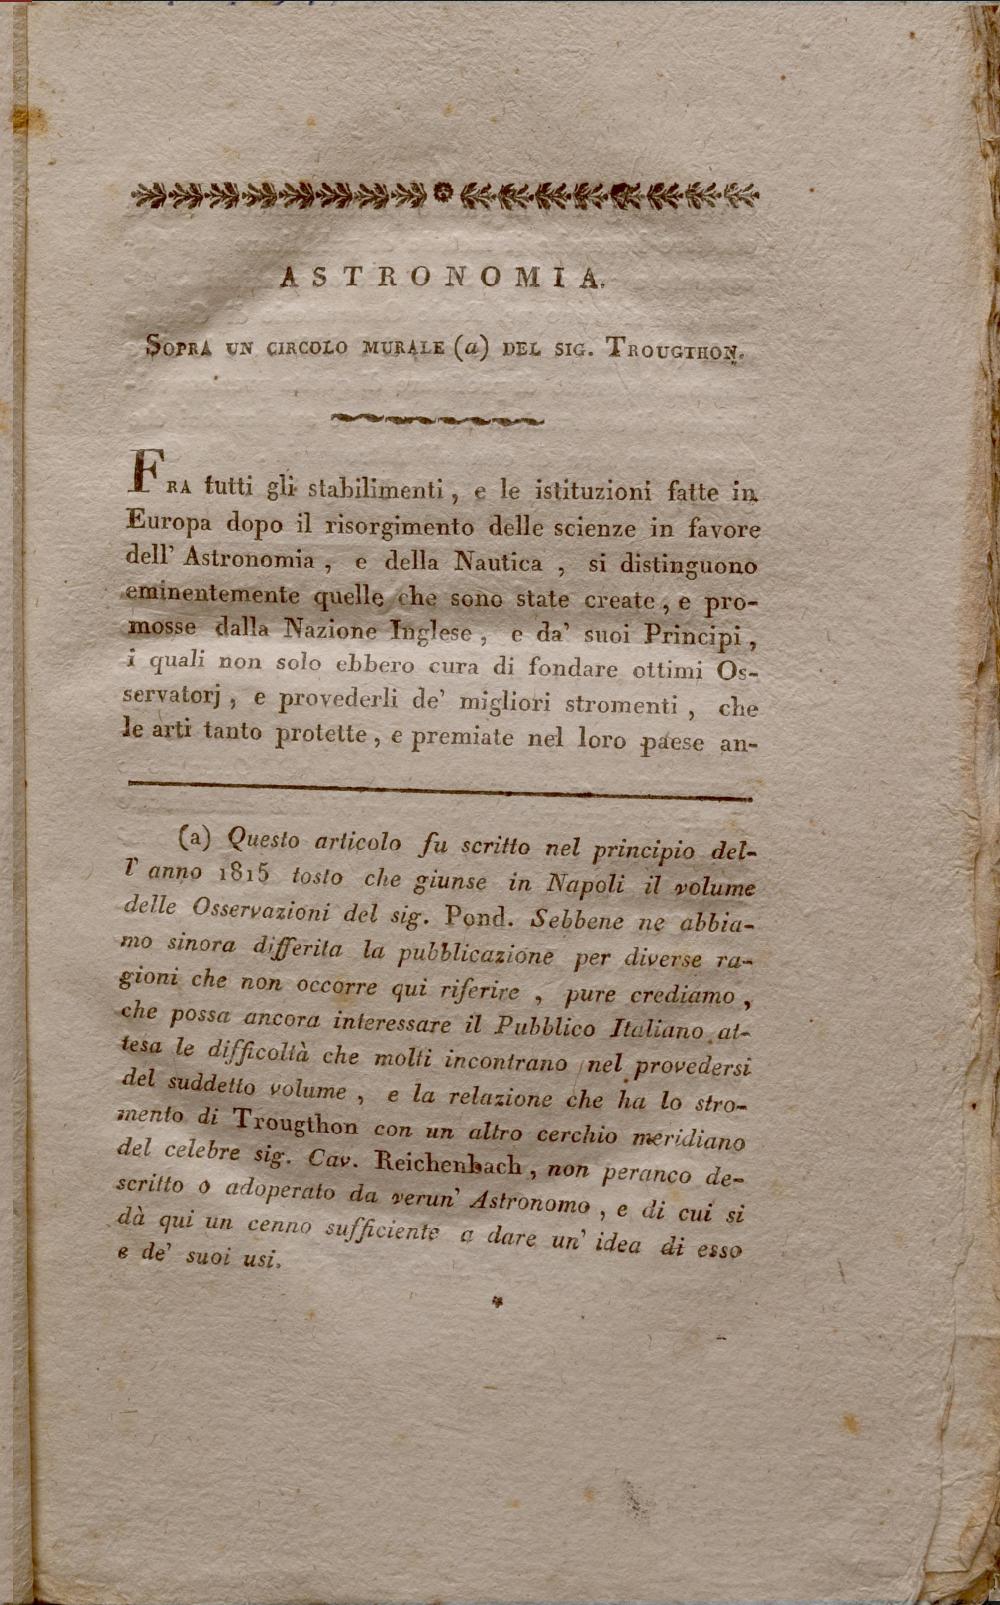 ASTRONOMIA.
SOPRA UN CIRCOLO MURALE (a) DEL SIG. TROUGTHON.
FRA tutti gli stabilimenti, e le istituzioni fatte in
Europa dopo il risorgimento delle scienze in favore
dell' Astronomia, e della Nautica, si distinguono
eminentemente quelle che sono state create, e pro-
mosse dalla Nazione Inglese, e da' suoi Principi,
i quali non solo ebbero cura di fondare ottimi Os-
servatorj, e provederli de' migliori stromenti, che
le arti tanto protette, e premiate nel loro paese an-
(a) Questo articolo fu scritto nel principio del-
l' anno 1815 tosto che giunse in Napoli il volume
delle Osservazioni del sig. Pond. Sebbene ne abbia-
mo sinora differita la pubblicazione per diverse ra-
gioni che non occorre qui riferire, pure crediamo,
che possa ancora interessare il Pubblico Italiano at-
tesa le difficoltà che molti incontrano nel provedersi
del suddetto volume, e la relazione che ha lo stro-
mento di Trougthon con un altro cerchio meridiano
del celebre sig. Cav. Reichenbach, non peranco de-
scritto o adoperato da verun' Astronomo, e di cui si
dà qui un cenno sufficiente a dare un' idea di esso
e de' suoi usi.
*